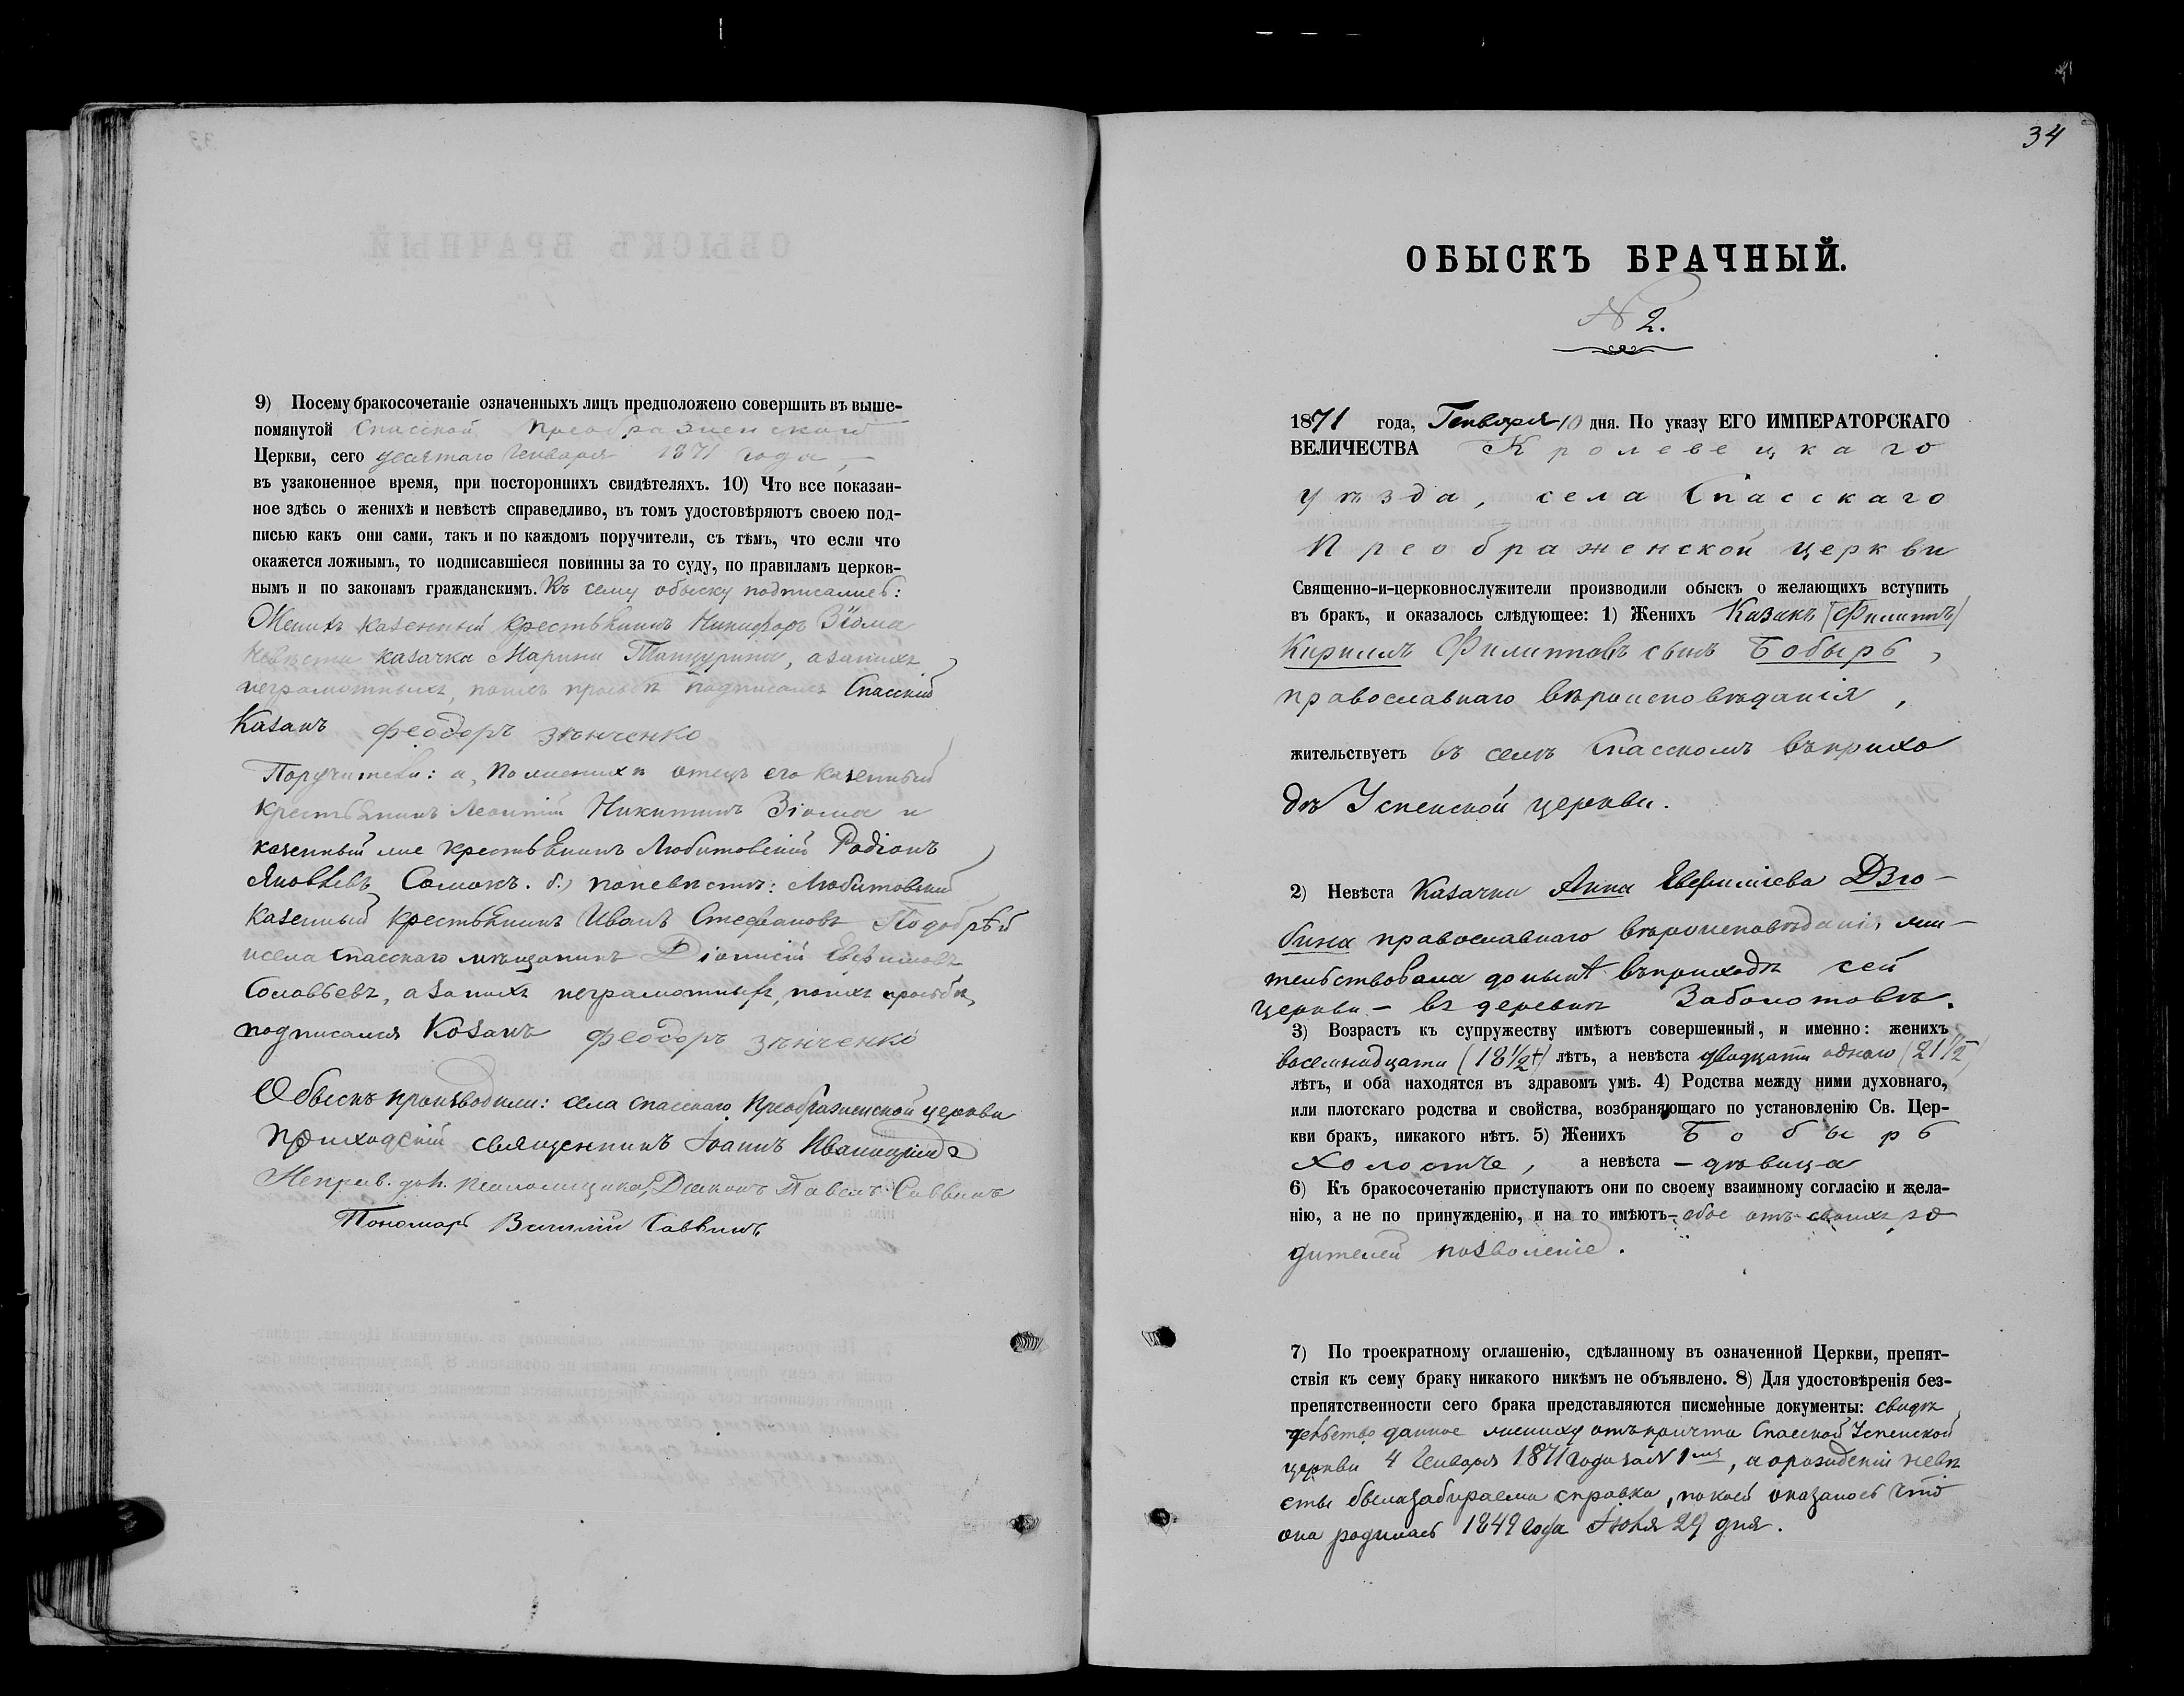 9) Посему бракосочетаніе означенныхъ лицъ предположено совершить въ выше-
помянутой Спасской Преображенской
Церкви, сего десятаго Генваря 1871 года, —
въ узаконенное время, при постороннихъ свидѣтеляхъ. 10) Что все показан-
ное здѣсь о женихѣ и невѣстѣ справедливо, въ томъ удостовѣряютъ своею под-
писью какъ они сами, такъ и по каждомъ поручители, съ тѣмъ, что если что
окажется ложнымъ, то подписавшіеся повинны за то суду, по правиламъ церков-
нымъ и по законамъ гражданскимъ. Къ сему обыску подписались:
Женихъ казенный крестьянинъ Никифоръ Зіома
Невѣста казачка Марина, а за нихъ
неграмотныхъ, по ихъ прозьбѣ подписалъ Спасскій
Казакъ Феодоръ Зѣнченко
Поручители: а, по женихѣ отецъ его казенный
крестьянинъ Леонтій Никитинъ Зіома и
казенный же крестьянинъ Любитовскій Родіонъ
Яковлевъ Сомокъ. б.) по невѣстѣ: Любитовскій
казенный крестьянинъ Иванъ Стефановъ
и села Спасскаго мѣщанинъ Діонисій Евфимовъ
Соловьевъ, а за нихъ неграмотныхъ, по ихъ прозьбѣ,
подписался Козакъ Феодоръ Зѣнченко
Обыскъ производили: села Спасскаго Преображенской церкви
Приходскій священникъ Іоаннъ
Исправ. дол. псаломщика, Діаконъ Павелъ Саввинъ
Пономарь Василій Саввинъ
34
ОБЫСКЪ БРАЧНЫЙ.
№ 2.
1871 года, Генваря 10 дня. По указу ЕГО ИМПЕРАТОРСКАГО
ВЕЛИЧЕСТВА Кролевецкаго
уѣзда, села Спасскаго
Преображенской церкви
Священно-и-церковнослужители производили обыскъ о желающихъ вступить
въ бракъ, и оказалось слѣдующее: 1) Женихъ Казакъ (Филиппъ)
Кириллъ Филипповъ сынъ Бобырь,
православнаго вѣроисповѣданія,
жительствуетъ въ селѣ Спасскомъ въ прихо
дѣ Успенской церкви.
2) Невѣста Казачка Анна Евфиміева Дзю-
бина православнаго вѣроисповѣданія, жи-
тельствовала донынѣ въ приходѣ сей
церкви — въ деревнѣ Заболотовкѣ.
3) Возрастъ къ супружеству имѣютъ совершенный, и именно: женихъ
восемнадцати (18 1/2) лѣтъ, а невѣста двадцати одного (21 1/2)
лѣтъ, и оба находятся въ здравомъ умѣ. 4) Родства между ними духовнаго,
или плотскаго родства и свойства, возбраняющаго по установленію Св. Цер-
кви бракъ, никакого нѣтъ. 5) Женихъ Бобырь
холостъ, а невѣста — дѣвица
6) Къ бракосочетанію приступаютъ они по своему взаимному согласію и жела-
нію, а не по принужденію, и на то имѣютъ — обое отъ своихъ ро
дителей позволеніе.
7) По троекратному оглашенію, сдѣланному въ означенной Церкви, препят-
ствія къ сему браку никакого никѣмъ не объявлено. 8) Для удостовѣренія без-
препятственности сего брака представляются писменные документы: свидѣ
тельство данное жениху отъ причта Спасской Успенской
церкви 4 Генваря 1871 года за N 1мъ, а о рожденіи невѣ
сты была забираема справка, по коей оказалось что
она родилась 1849 года Іюля 29 дня.